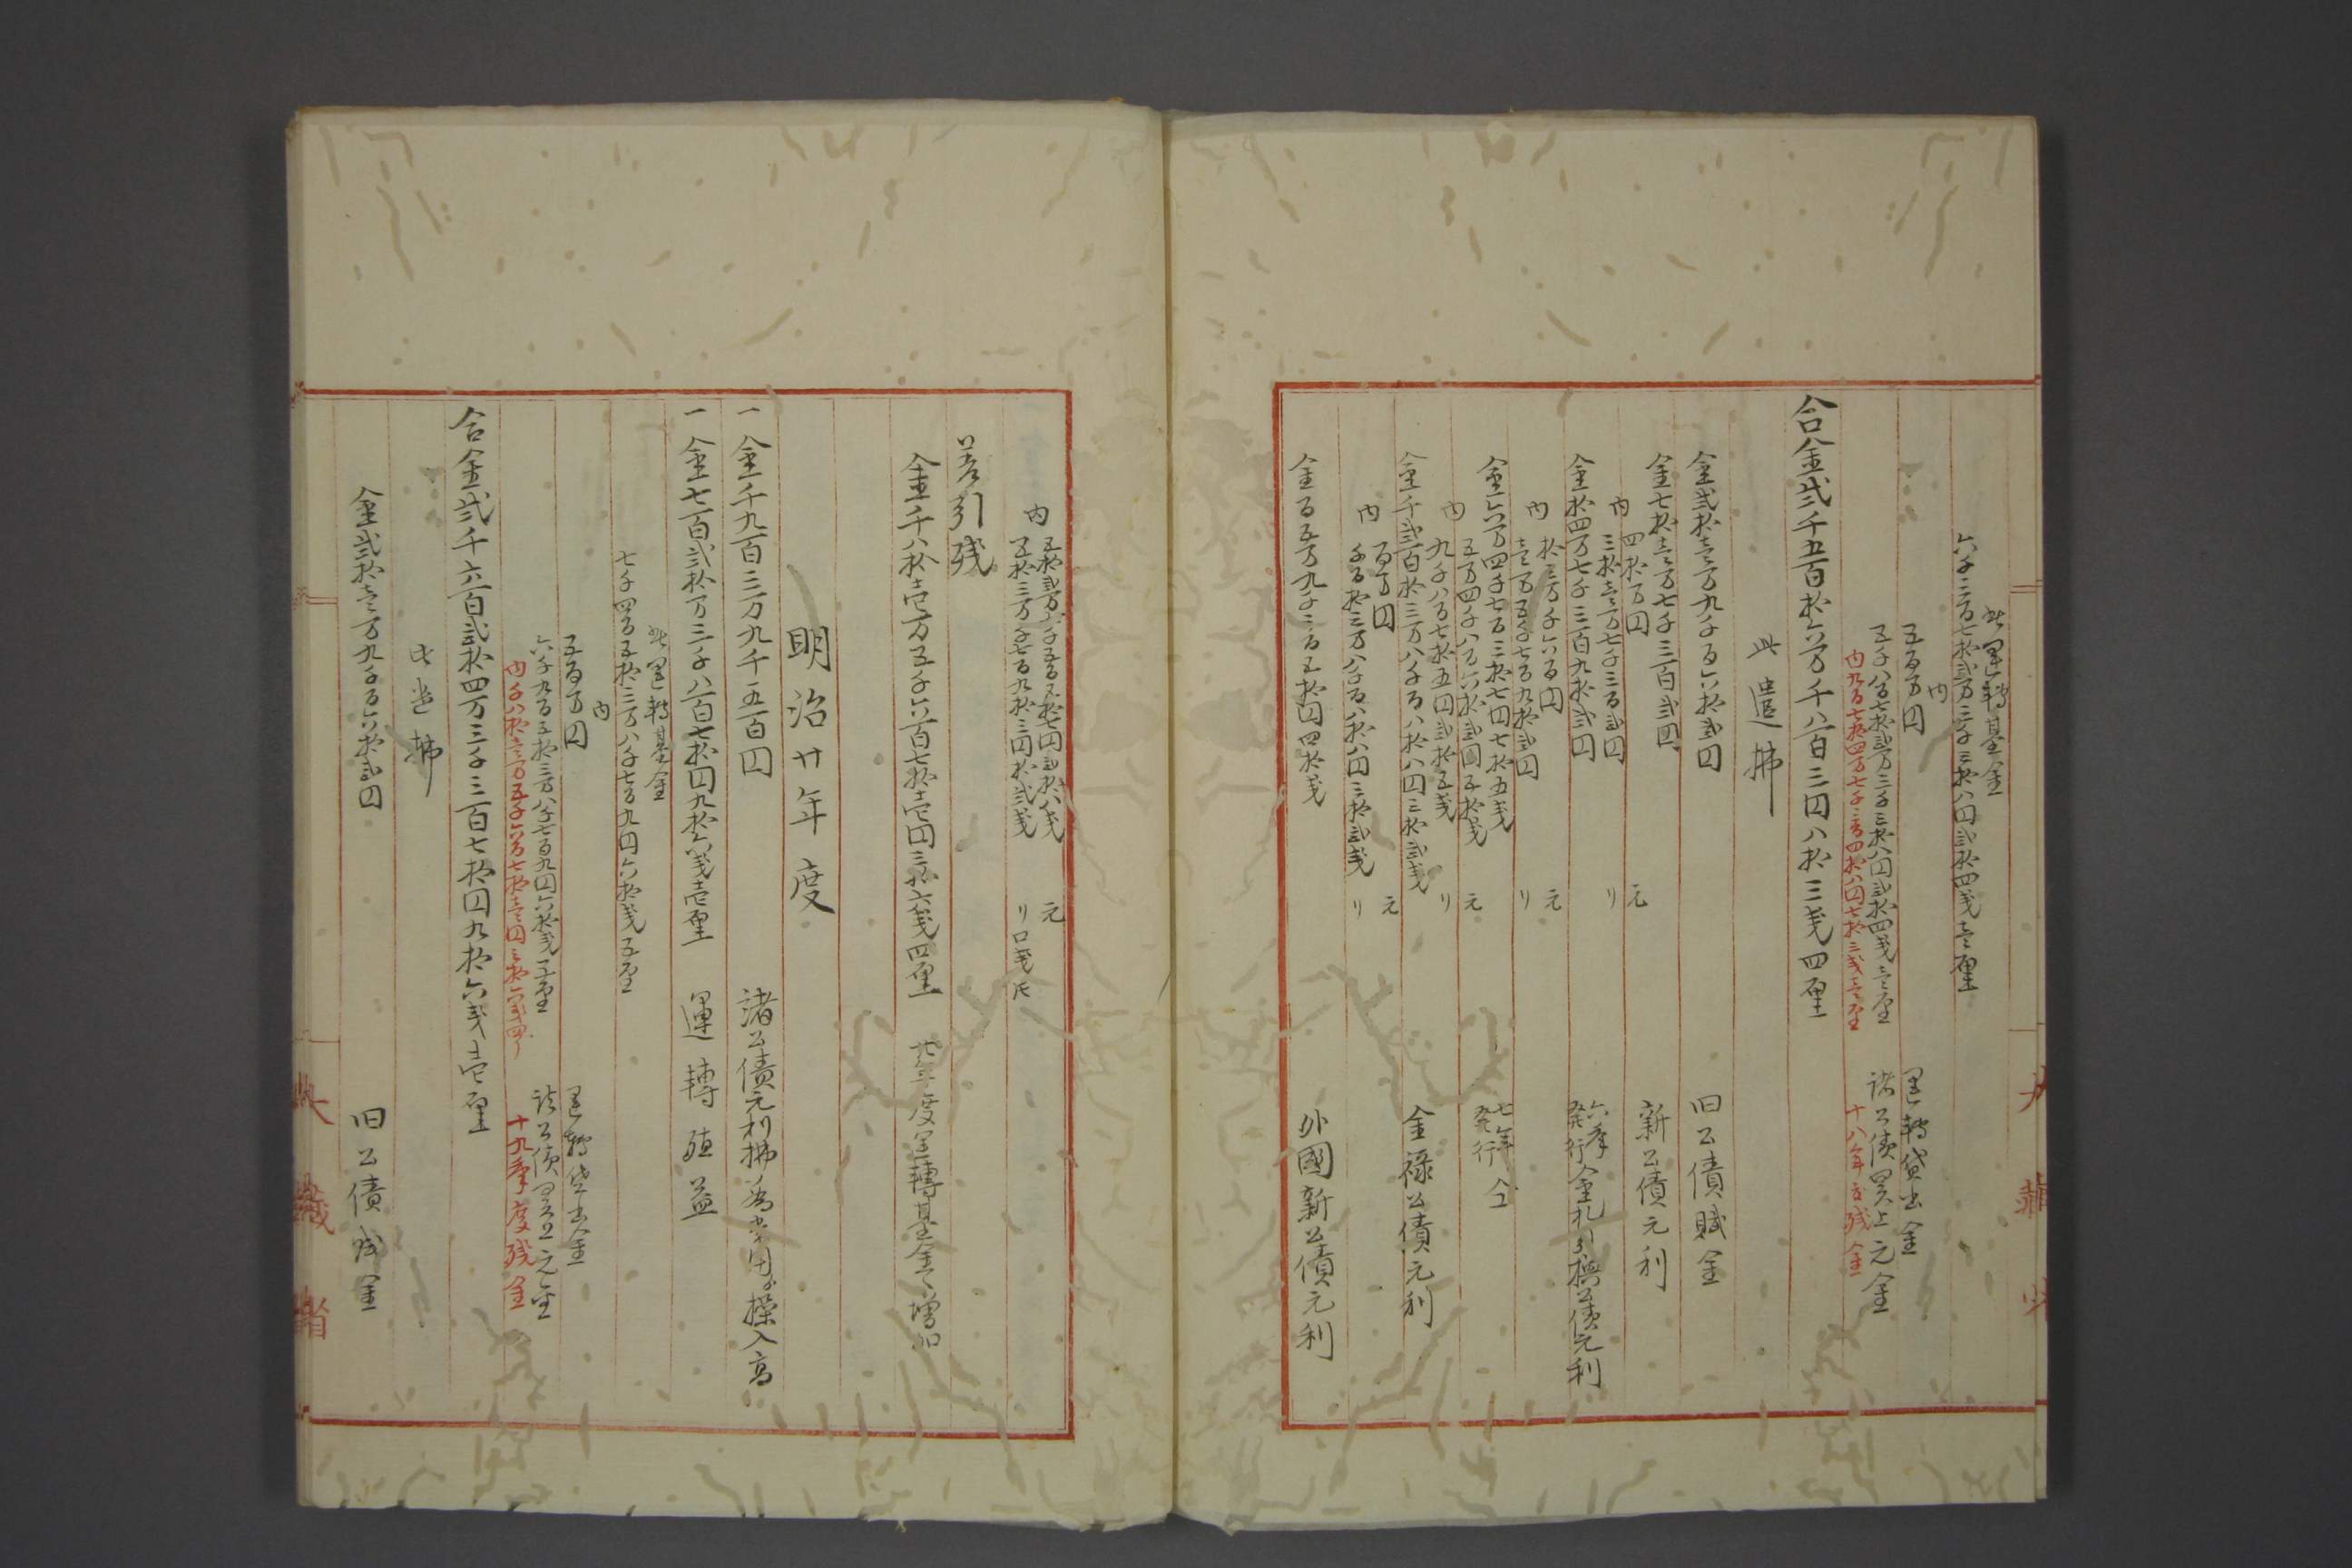 此運轉基金
六千三百七拾弐万三千三拾八円弐拾四戔壱厘
内
五百万円 運轉貸出金
五千八百七拾弐万三千三拾八円弐拾四戔壱厘 諸公債買上元金
内九百七拾四万七千三百四拾八円七拾三戔壱厘 十八年度残金
合金弐千五百拾六万千八百三円八拾三戔四厘
此遣拂
金弐拾壱万九千百六拾弐円 旧公債賦金
金七拾壱万七千三百弐円 新公債元利
内
四拾万円 元
三拾壱万七千三百弐円 リ
金拾四万七千三百九拾弐円 六年発行金札引換公債元利
内
拾三万千六百円 元
壱万五千七百九拾弐円 リ
金六万四千七百三拾七円七拾五戔 七年発行仝
内
五万四千八百六拾弐円五拾戔 元
九千八百七拾五円弐拾五戔 リ
金千弐百拾三万八千百八拾八円三拾弐戔 金禄公債元利
内
百万円 元
千百拾三万八千百八拾八円三拾弐戔 リ
金百五万九千三百五拾円四拾戔 外國新公債元利
内
五拾弐万千五百五拾七円弐拾八戔 元
五拾三万千七百九拾三円拾弐戔 リ
差引残
金千八拾壱万五千六百七拾壱円三拾六戔四厘 廿年度運轉基金へ増加
明治廿年度
一金千九百三万九千五百円 諸公債元利拂為常用ヨリ操入高
一金七百弐拾万三千八百七拾円九拾六戔壱厘 運轉殖益
此運轉基金
七千四百五拾三万八千七百九円六拾戔五厘
内
五百万円 運轉貸出金
六千九百五拾三万八千七百九円六拾戔五厘 諸公債買上元金
内千八拾壱万五千六百七拾壱円三拾六戔四リ 十九年度残金
合金弐千六百弐拾四万三千三百七拾円九拾六戔壱厘
此遣拂
金弐拾壱万九千百六拾弐円 旧公債賦金
大藏省